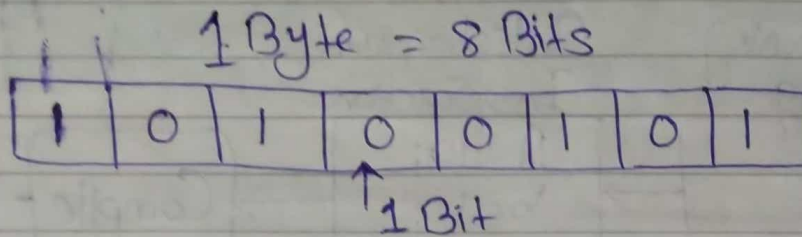 1 Byte = 8 Bits
1 0 1 0 0 1 0 1
↑ 1 Bit